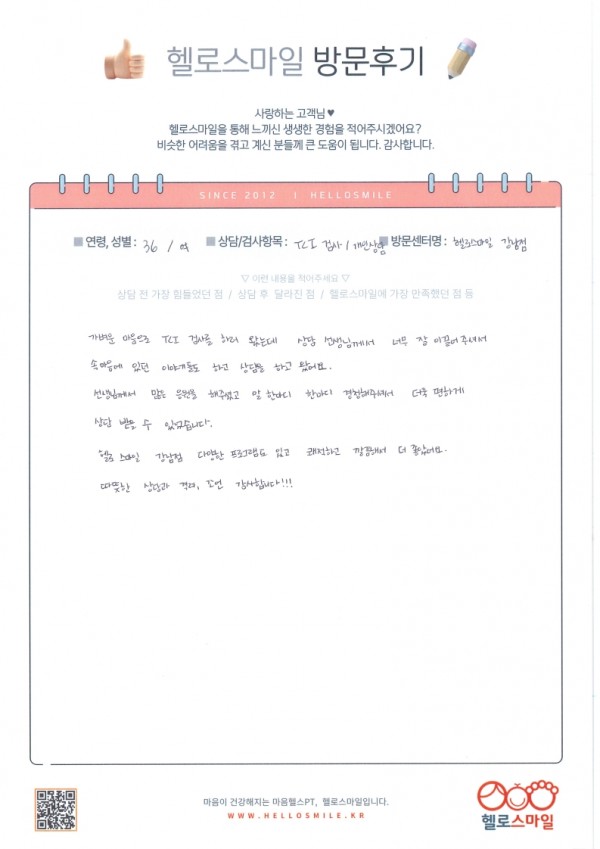 헬로스마일 방문후기
사랑하는 고객님♥
헬로스마일을 통해 느끼신 생생한 경험을 적어주시겠어요?
비슷한 어려움을 겪고 계신 분들께 큰 도움이 됩니다. 감사합니다.
SINCE 2012 | HELLOSMILE
■ 연령, 성별 : 36 / 여 ■ 상담/검사항목 : TCI 검사 / 개인상담 ■ 방문센터명 : 헬로스마일 강남점
▽ 이런 내용을 적어주세요 ▽
상담 전 가장 힘들었던 점 / 상담 후 달라진 점 / 헬로스마일에 가장 만족했던 점 등
가벼운 마음으로 TCI 검사를 하러 왔는데 상담 선생님께서 너무 잘 이끌어주셔서
속마음에 있던 이야기들도 하고 상담을 하고 왔어요.
선생님께서 많은 응원을 해주셨고 말 한마디 한마디 경청해주셔서 더욱 편하게
상담 받을 수 있었습니다.
헬로 스마일 강남점 다양한 프로그램도 있고 쾌적하고 깔끔해서 더 좋았어요.
따뜻한 상담과 격려, 조언 감사합니다!!!
마음이 건강해지는 마음헬스PT, 헬로스마일입니다.
WWW.HELLOSMILE.KR
헬로스마일